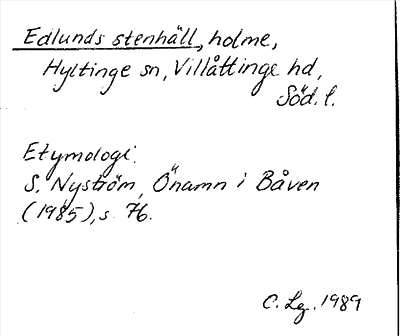 Edlunds stenhäll, holme,
Hyltinge sn, Villåttinge hd,
Söd. l.
Etymologi:
S. Nyström, Önamn i Båven
(1985), s. 76.
C. Lg. 1989